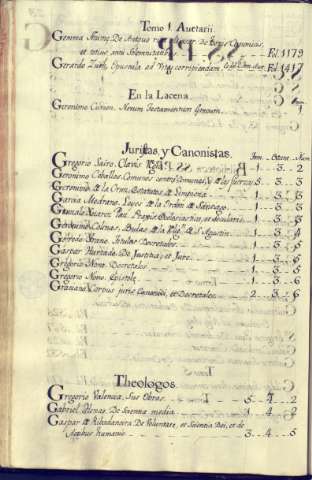 Tomo I. Auctarii
Gemma
et totius anni Solemnitatibus Fol. 1179
Gerardo Zutph. Opuscula ad Fol. 1417
En la Lacena
Geronimo Novum Testamentum 1
Juristas, y Canonistas.
Tom. Estant. Num.
Gregorio Sairo. Clavis Regia 1 . 3 . 2
Geronimo Ceballos. Comunes contra Comunes, y de las fuerzas 5 . 3 . 3
Geronimo de la Crus. Estatutos de Limpieza 1 . 3 . 3
Garcia Medrano. Leyes de la Orden de Santiago 1 . 3 . 3
Praxis Eclesiastica, et Secularis 1 . 3 . 3
Geronimo Bulas de la Relig.n de S. Agustin 1 . 3 . 4
Titulos Decretales 1 . 3 . 5
Gaspar Hurtado De Justitia, et Jure 1 . 3 . 6
Gregorio Nono. Decretales 1 . 3 . 5
Gregorio Nono. Epistolę 1 . 3 . 6
Graciano Corpus juris Canonici, et Decretales 2 . 3 . 6
Theologos.
Gregorio Valencia. Sus Obras 5 . 4 . 2
Gabriel Henao. De Scientia media 1 . 4 . 2
Gaspar de Ribadaneira De Voluntate, et Scientia Dei, et de
Actibus Humanis 3 . 4 . 5